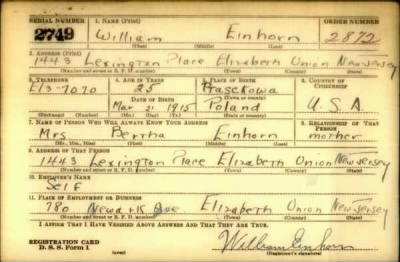 SERIAL NUMBER 1. NAME (Print) ORDER NUMBER
2749 William Einhorn 2872
(First) (Middle) (Last)
2. ADDRESS (Print)
1443 Lexington Place Elizabeth Union New Jersey
(Number and street or R. F. D. number) (Town) (County) (State)
3. TELEPHONE 4. AGE IN YEARS 5. PLACE OF BIRTH 6. COUNTRY OF CITIZENSHIP
El 3-7070 25
DATE OF BIRTH (Town or county)
Mar 21 1915 Poland U.S.A
(Exchange) (Number) (Mo.) (Day) (Yr.) (State or country)
7. NAME OF PERSON WHO WILL ALWAYS KNOW YOUR ADDRESS 8. RELATIONSHIP OF THAT PERSON
Mrs. Bertha Einhorn mother
(Mr., Mrs., Miss) (First) (Middle) (Last)
9. ADDRESS OF THAT PERSON
1443 Lexington Place Elizabeth Union New Jersey
(Number and street or R. F. D. number) (Town) (County) (State)
10. EMPLOYER'S NAME
Self
11. PLACE OF EMPLOYMENT OR BUSINESS
780 Newark Ave Elizabeth Union New Jersey
(Number and street or R. F. D. number) (Town) (County) (State)
I AFFIRM THAT I HAVE VERIFIED ABOVE ANSWERS AND THAT THEY ARE TRUE.
REGISTRATION CARD
D. S. S. Form 1 (over) William Einhorn
(Registrant's signature)